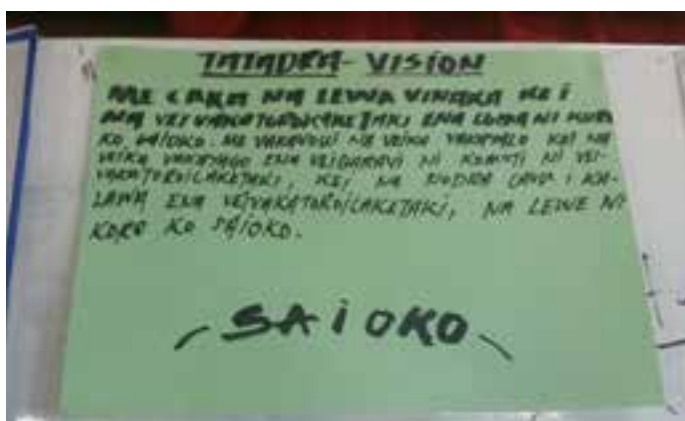 TATADRA - VISION
ME CAKA NA LEWA VINAKA KEI
NA VEIVAKATOROICAKETAKI ENA LOMA NI KORO
KO SAIOKO. ME VAKAVOUI NA VEIKA VAKAYALO KEI NA
VEIKA VAKAYAGO ENA VEIQARAVI NI KOMITI NI VEI-
VAKATOROICAKETAKI, KEI NA NODRA LAVA I KA-
LAWA ENA VEIVAKATOROICAKETAKI, NA LEWE NI
KORO KO SAIOKO.
SAIOKO